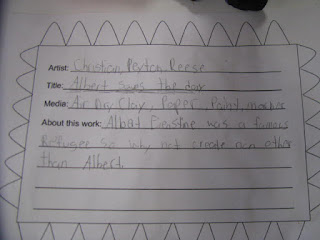 Artist: Christian, Peyton, Reese
Title: Albert Saves the day
Media: Air Dry Clay, Paper, Paint, marker
About this work: Albert Einstine was a famous
Refugee so why not create non other
than Albert.